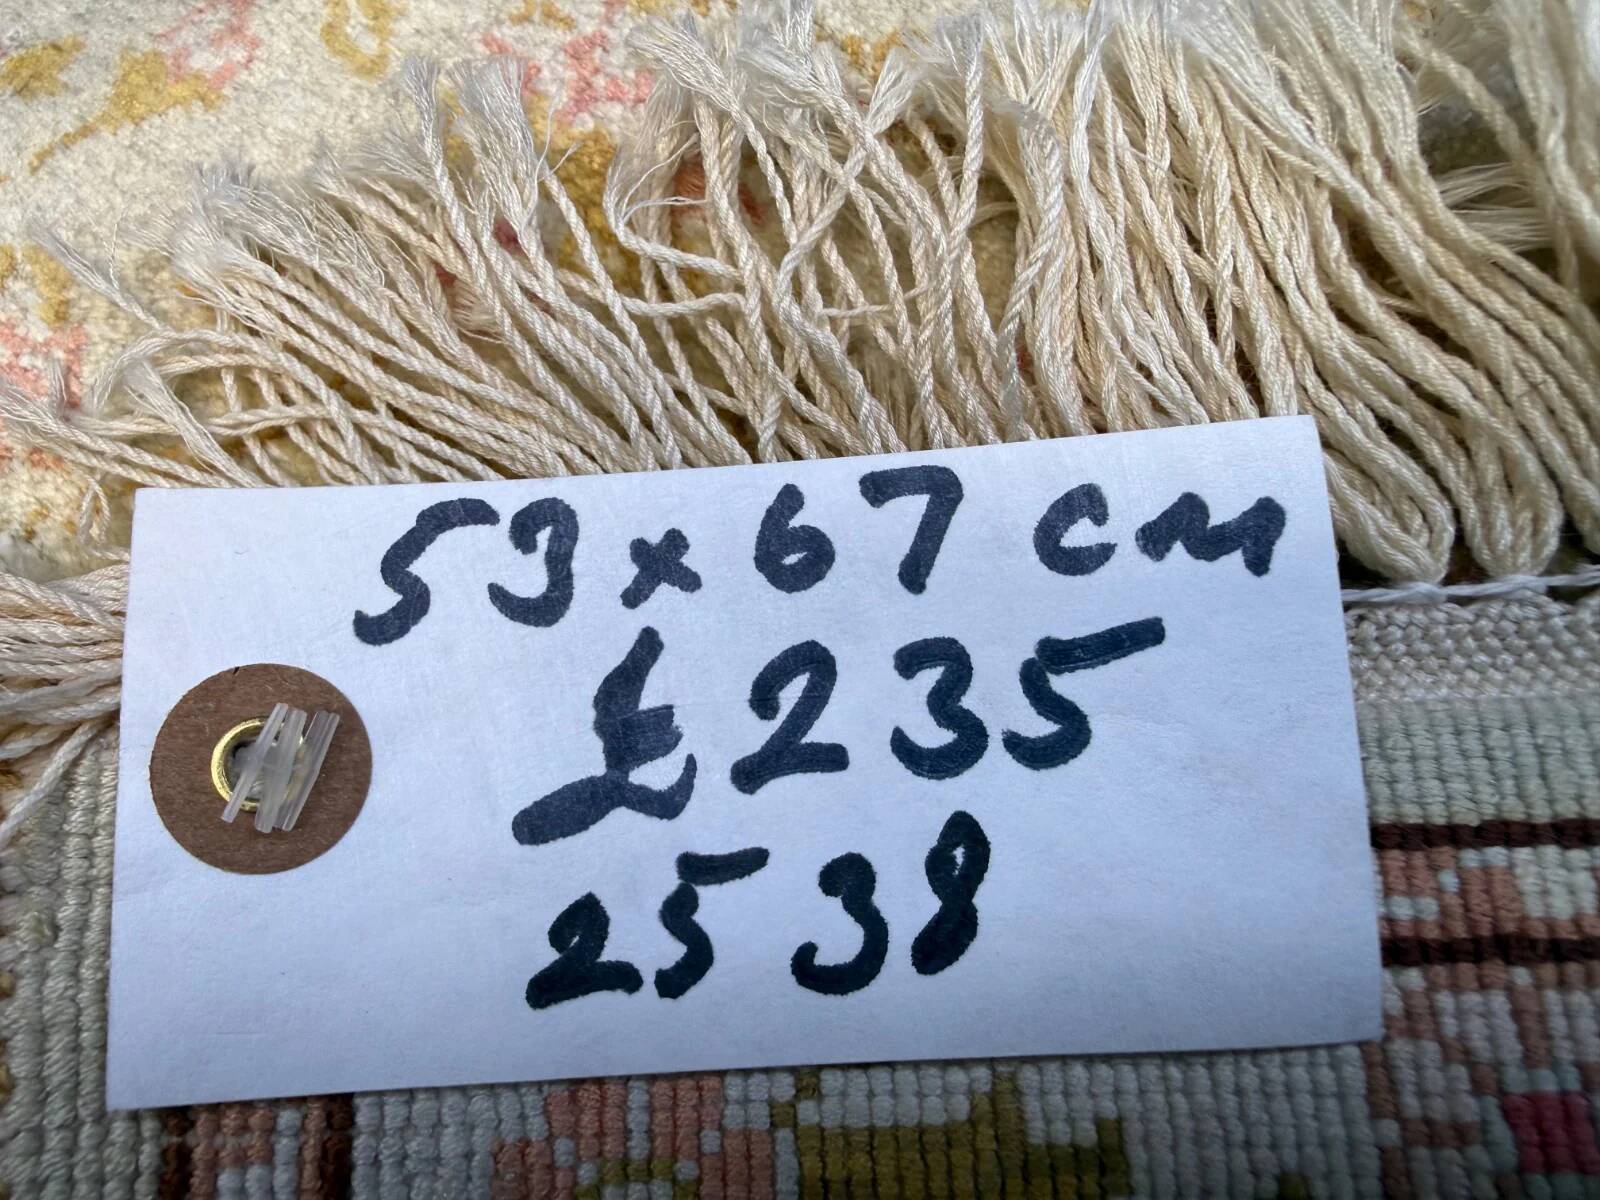 59 x 67 cm
£235
2538